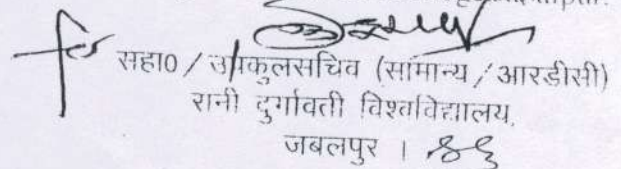 सहा0 / उपकुलसचिव (सामान्य / आरडीसी)
रानी दुर्गावती विश्वविद्यालय,
जबलपुर ।